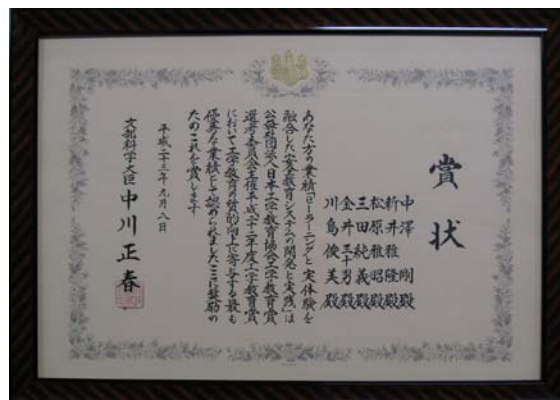 賞状
中澤 剛殿
新井雅隆殿
松原雅昭殿
三田純義殿
金井三十男殿
川島俊美殿
あなた方の業績「eラーニングと実体験を
融合した安全教育システムの開発と実践」は
公益社団法人日本工学教育協会工学教育賞
選考委員会主催平成二十三年度工学教育賞
において工学教育の質的向上に寄与する最も
優秀な業績として認められましたここに奨励の
ためこれを賞します
平成二十三年九月八日
文部科学大臣 中川正春